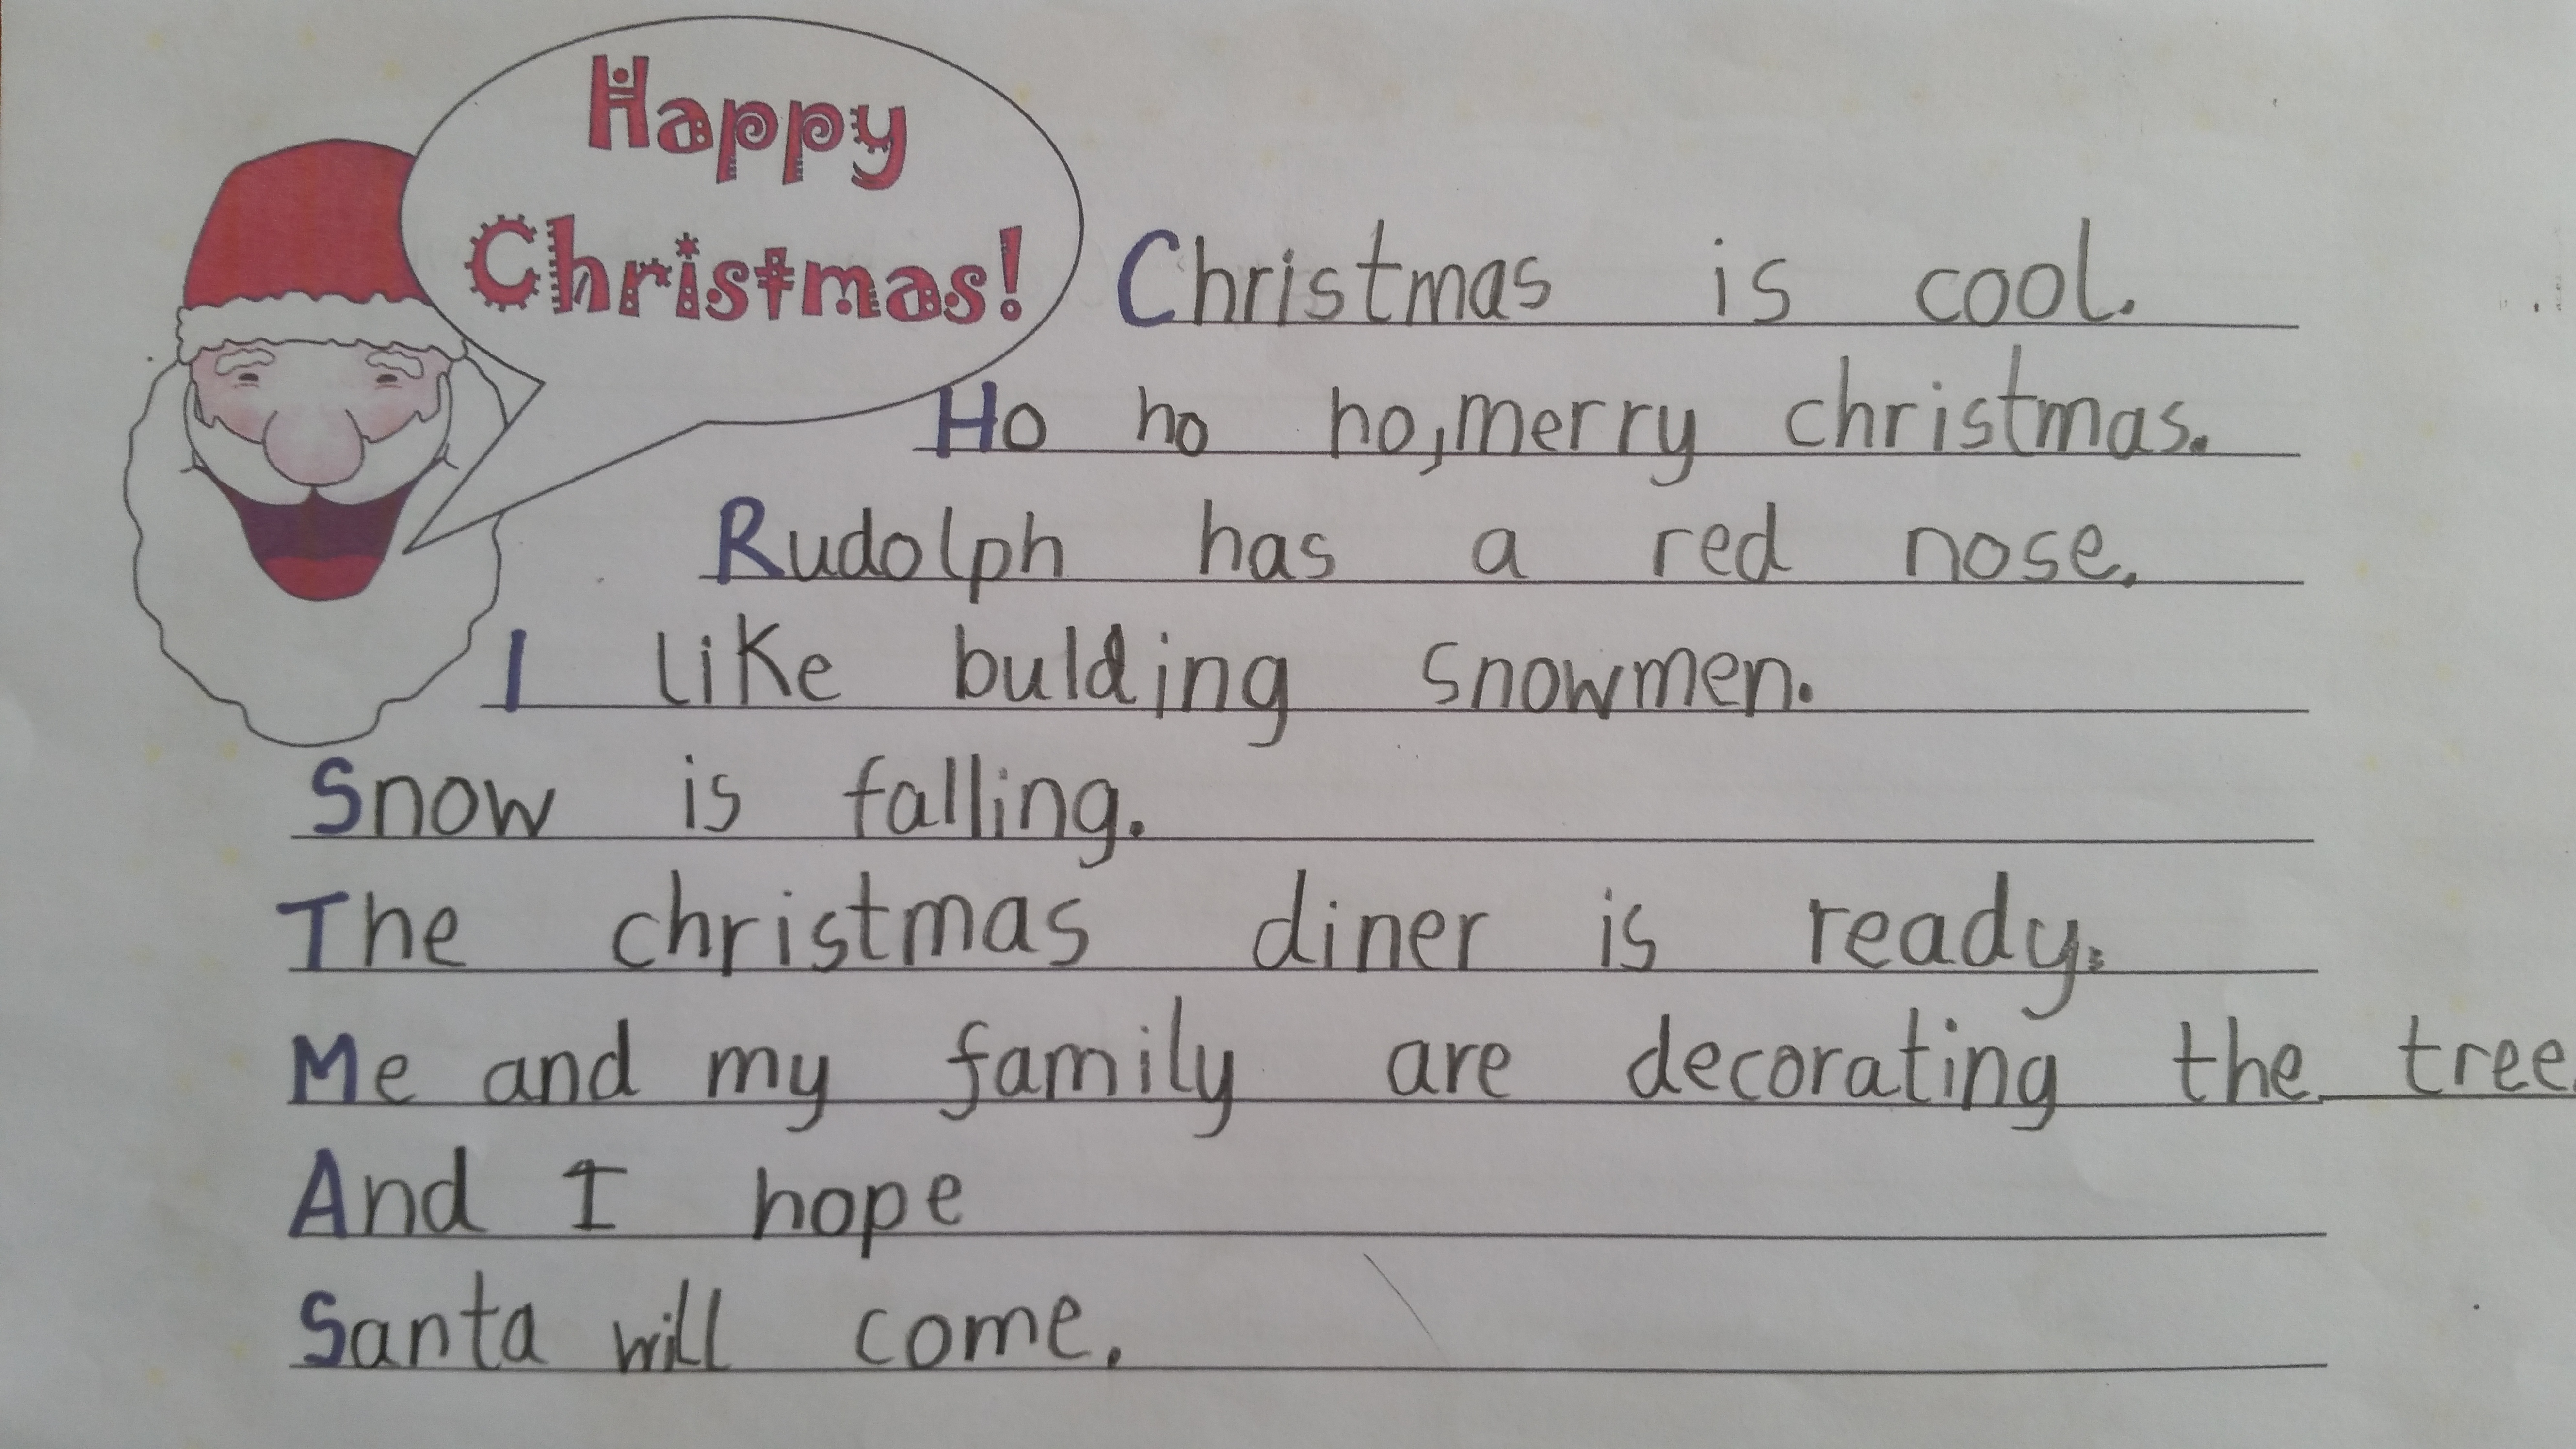 Happy
Christmas!
Christmas is cool.
Ho ho ho, merry christmas.
Rudolph has a red nose.
I like bulding snowmen.
Snow is falling.
The christmas diner is ready.
Me and my family are decorating the tree.
And I hope
Santa will come.